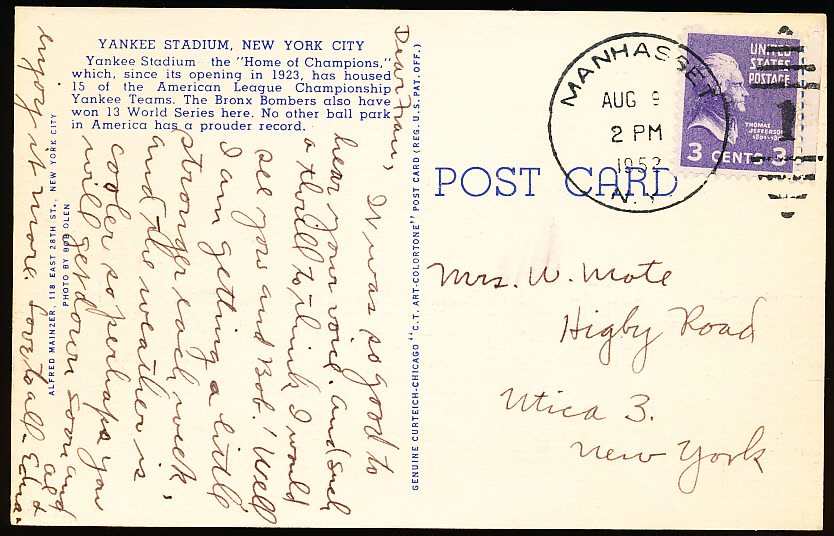 YANKEE STADIUM, NEW YORK CITY
Yankee Stadium the "Home of Champions,"
which, since its opening in 1923, has housed
15 of the American League Championship
Yankee Teams. The Bronx Bombers also have
won 13 World Series here. No other ball park
in America has a prouder record.
Dear Fran,
It was so good to
hear your voice. and such
a thrill to think I would
see you and Bob! Well
I am getting a little
stronger each week,
and the weather is
cooler so perhaps you
will get down soon and
enjoy it more. Love to all - Edna.
ALFRED MAINZER, 118 EAST 28TH ST., NEW YORK CITY
PHOTO BY BOB OLEN
GENUINE CURTEICH-CHICAGO "C.T. ART-COLORTONE" POST CARD (REG. U.S. PAT. OFF.)
POST CARD
MANHASSET
AUG 9
2 PM
195
N.Y.
UNITED
STATES
POSTAGE
THOMAS
JEFFERSON
3 CENTS 3
1
Mrs. W. Mote
Higby Road
Utica 3.
New York